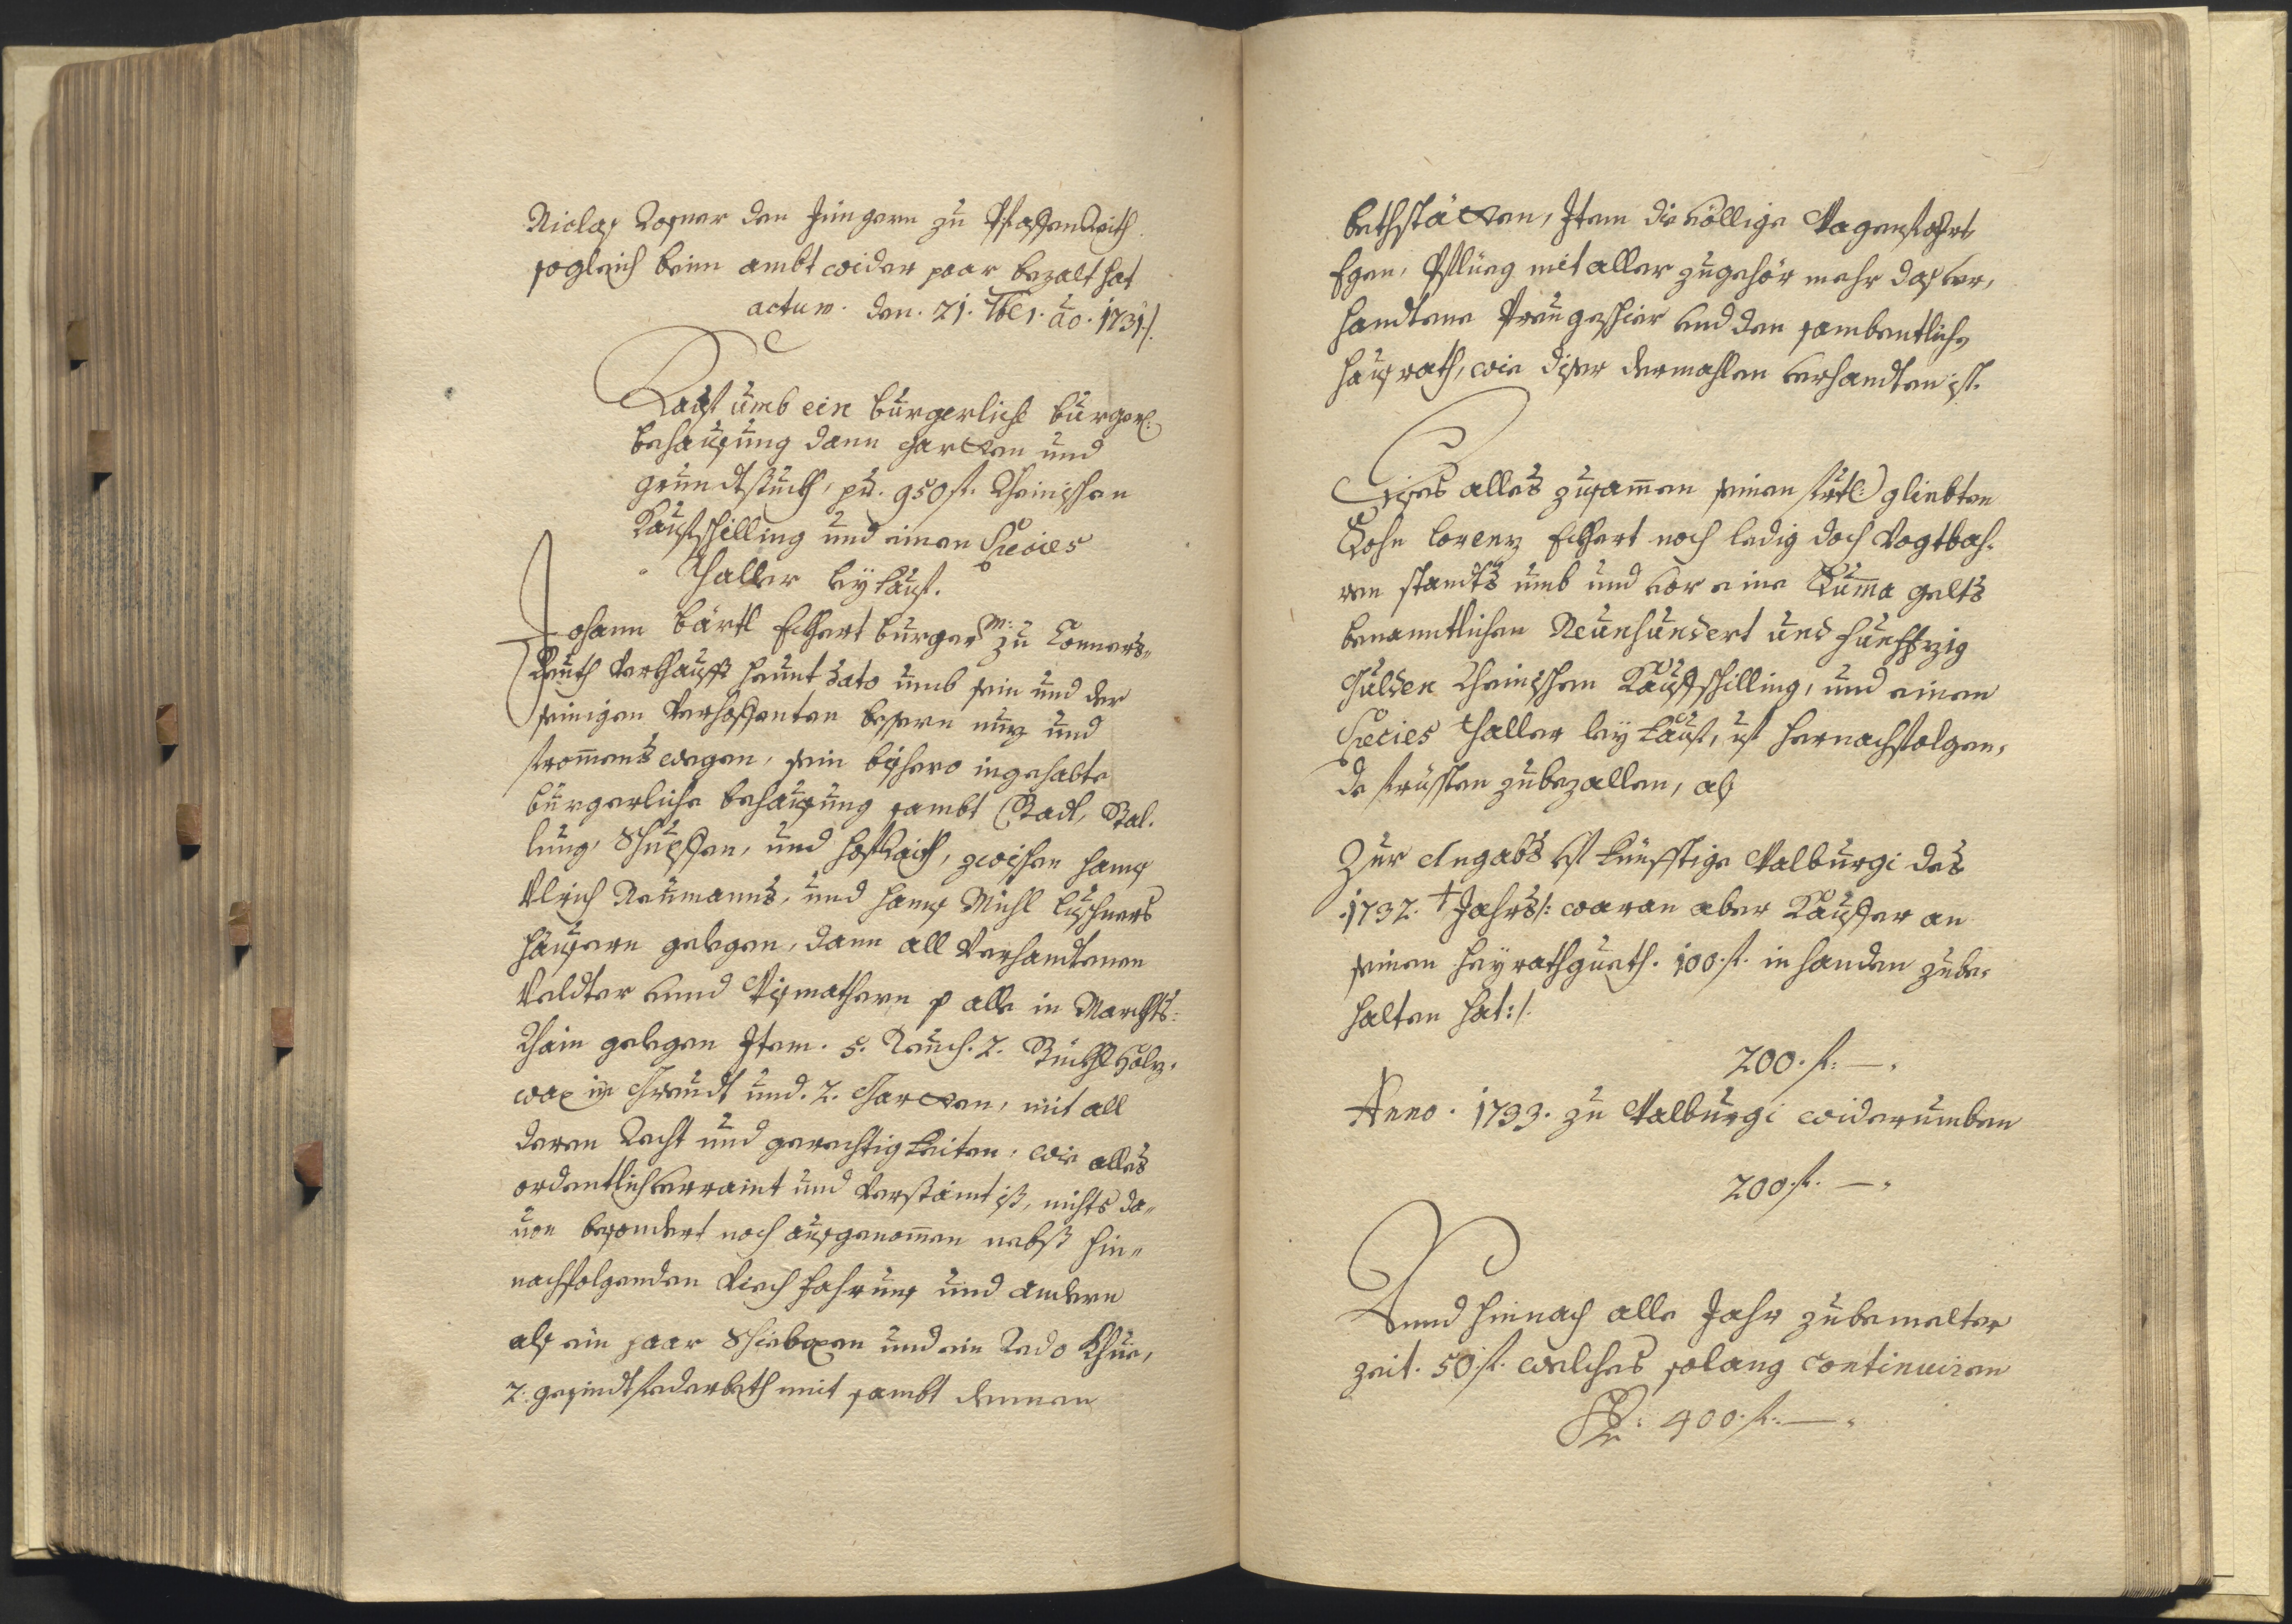 Niclas Rosner den Jüngern zu Pfaffenreith
sogleich beim ambt wider paar bezalt hat
actum. den. 21. 7br. ao. 1731./.
Kauf umb ein bürgerliche bürgerl:
behausung dann gartten und
grundtstückh, pr. 950 fl. Rheinischen
Kaufschilling und einen Species
Thaller leykauf.
Johann Bärtl Eckhert burger zu Conners-
Reuth verkaufft heunt dato umb sein und der
seinigen verhoffenten bessern nuz und
frommens wegen, sein bishero ingehabte
bürgerliche behausung sambt Stadl, Stal-
lung, Schupffen, und hofraith, zwischen hanns
Ulrich Neumanns, und hanns Michl Luschners
häusern gelegen, dann all verhandtenen
Veldter unnd Wismathern p alle in Marckhts-
Rhain gelegen Item. 5. 2. Stückhl holz-
wax in Greudt und. 2. Gartten, mit all
deren Recht und gerechtigkeiten, wie alles
ordentlich verraint und verstaint ist, nichts da-
uon besondert noch ausgenommen nebst hin-
nachfolgenden Viech fahrnus und andern
als ein paar Schiebochsen und ein Khue,
2. gesindt federbeth mit sambt denen
bethstätten, Item die völlige Wagenfahrt
Egen, Pflueg mit aller zugehör mehr das ver-
handtene Preugeschier und den sambentlichen
hausrath, wie diser dermahlen verhandten ist.
Dises alles zusammen seinen gliebten
Sohn Lorenz Eckhert noch ledig doch Vogtbah-
ren standts umb und vor eine Summa gelts
benanntlichen Neunhundert und fünffzig
Gulden Rheinischen Kaufschilling, und einen
Species thaller leykauf, uf hernachfolgen-
de fristen zubezallen, als
Zur Angabs ist künfftige Walburgi des
1732.t Jahrs/: woran aber Kauffer an
seinen heyrathgueth. 100. fl. in handen zube-
halten hat:/.
200. fl. —.
Anno. 1733. zu Walburgi widerumben
200. fl. —.
Unnd hinnach alle Jahr zu bemelter
zeit. 50. fl. welches solang continuiren
400. fl. —.